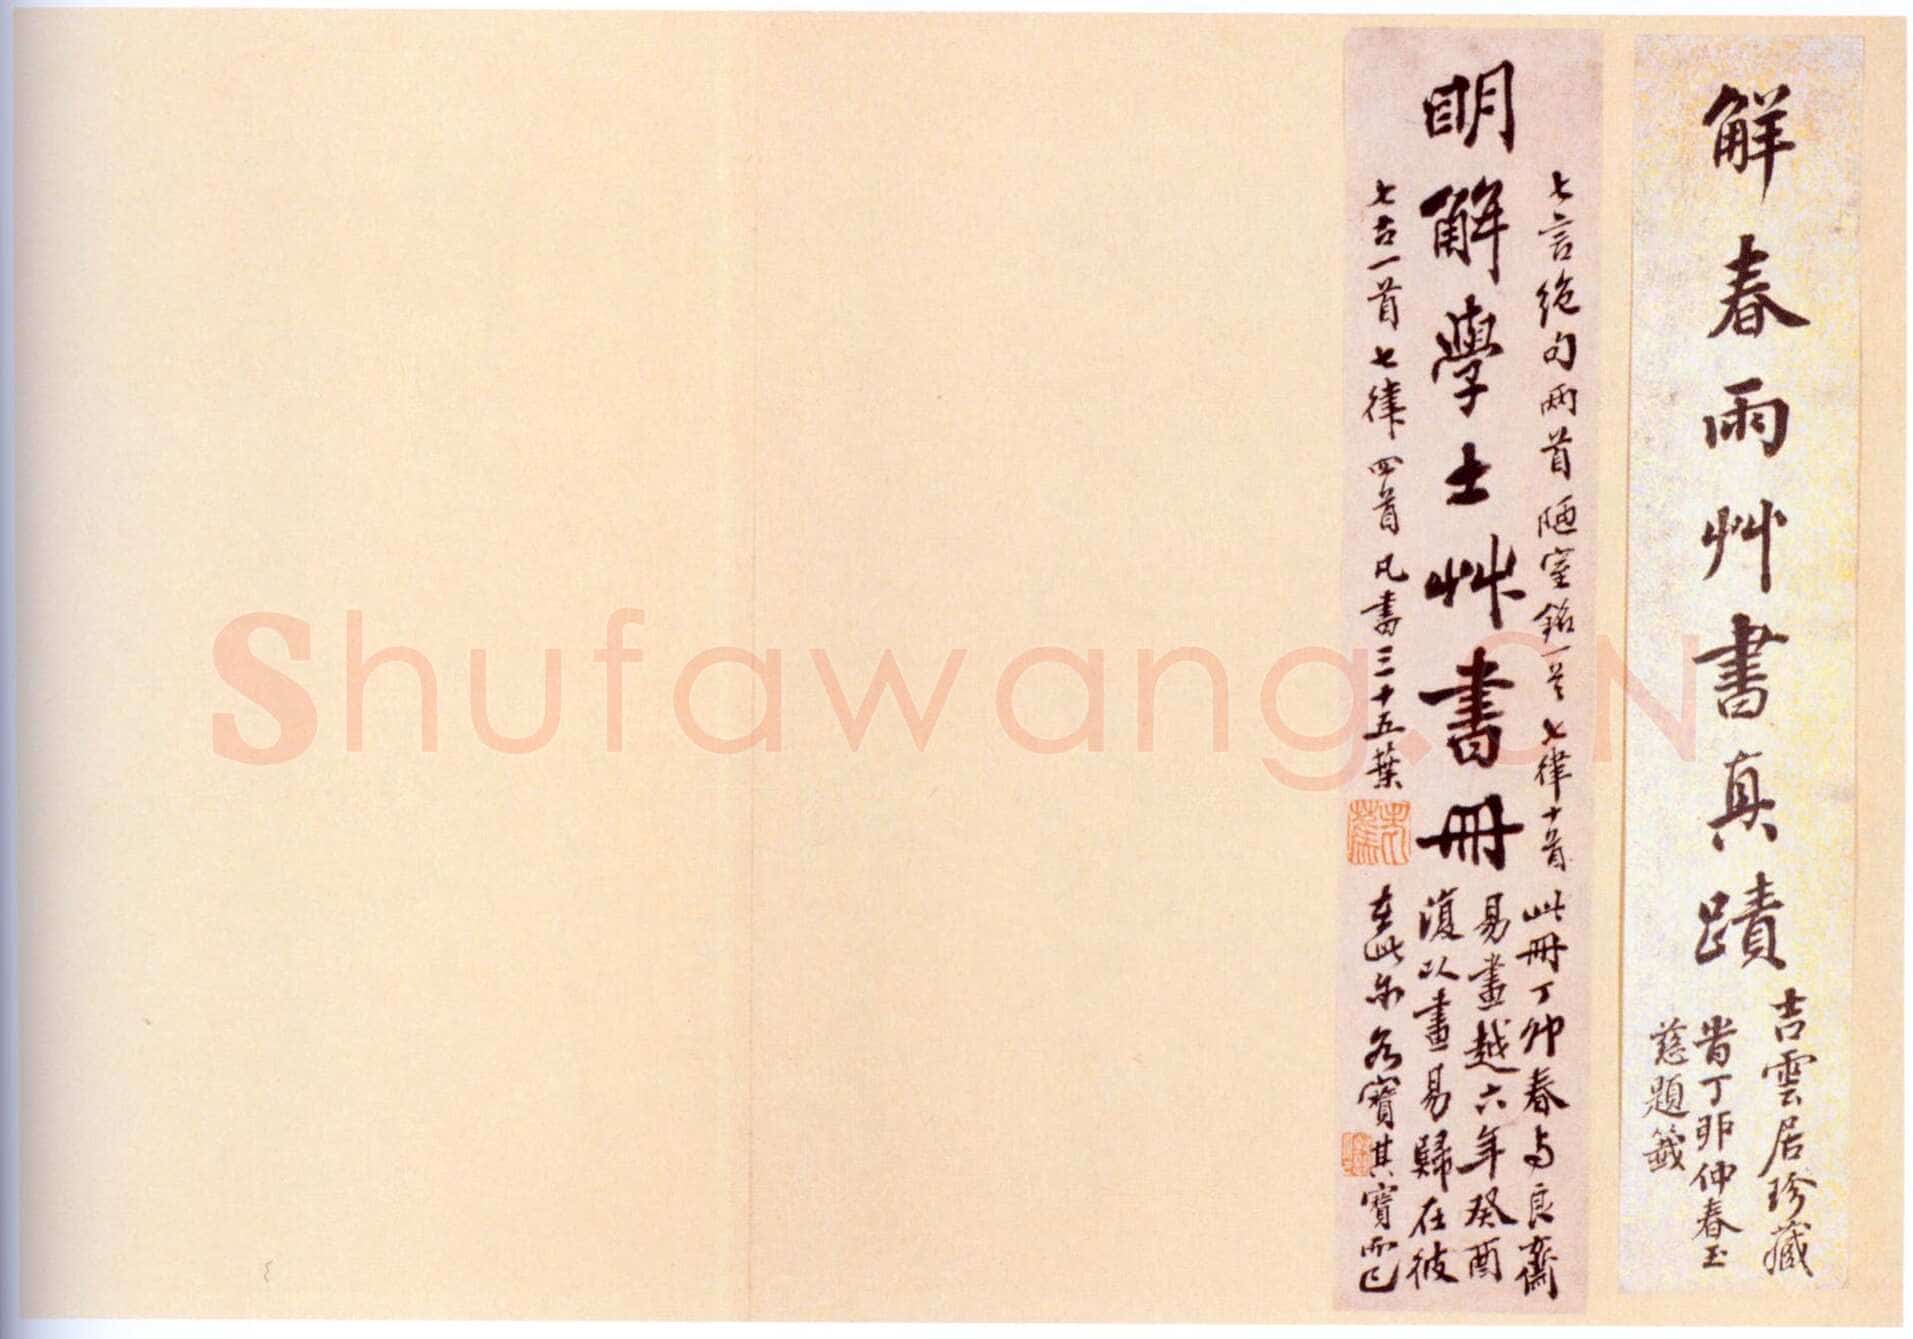 解春雨艸書真蹟
吉雲居珍藏
昔丁卯仲春玉
慈題籤
七言絶句兩首陋室銘一首七律十首
明解學士艸書冊
七古一首七律四首凡書三十五葉
此冊丁卯春与良齋
易畫越六年癸酉
復以畫易歸在彼
在此亦各寶其寶而已
Shufawang.CN